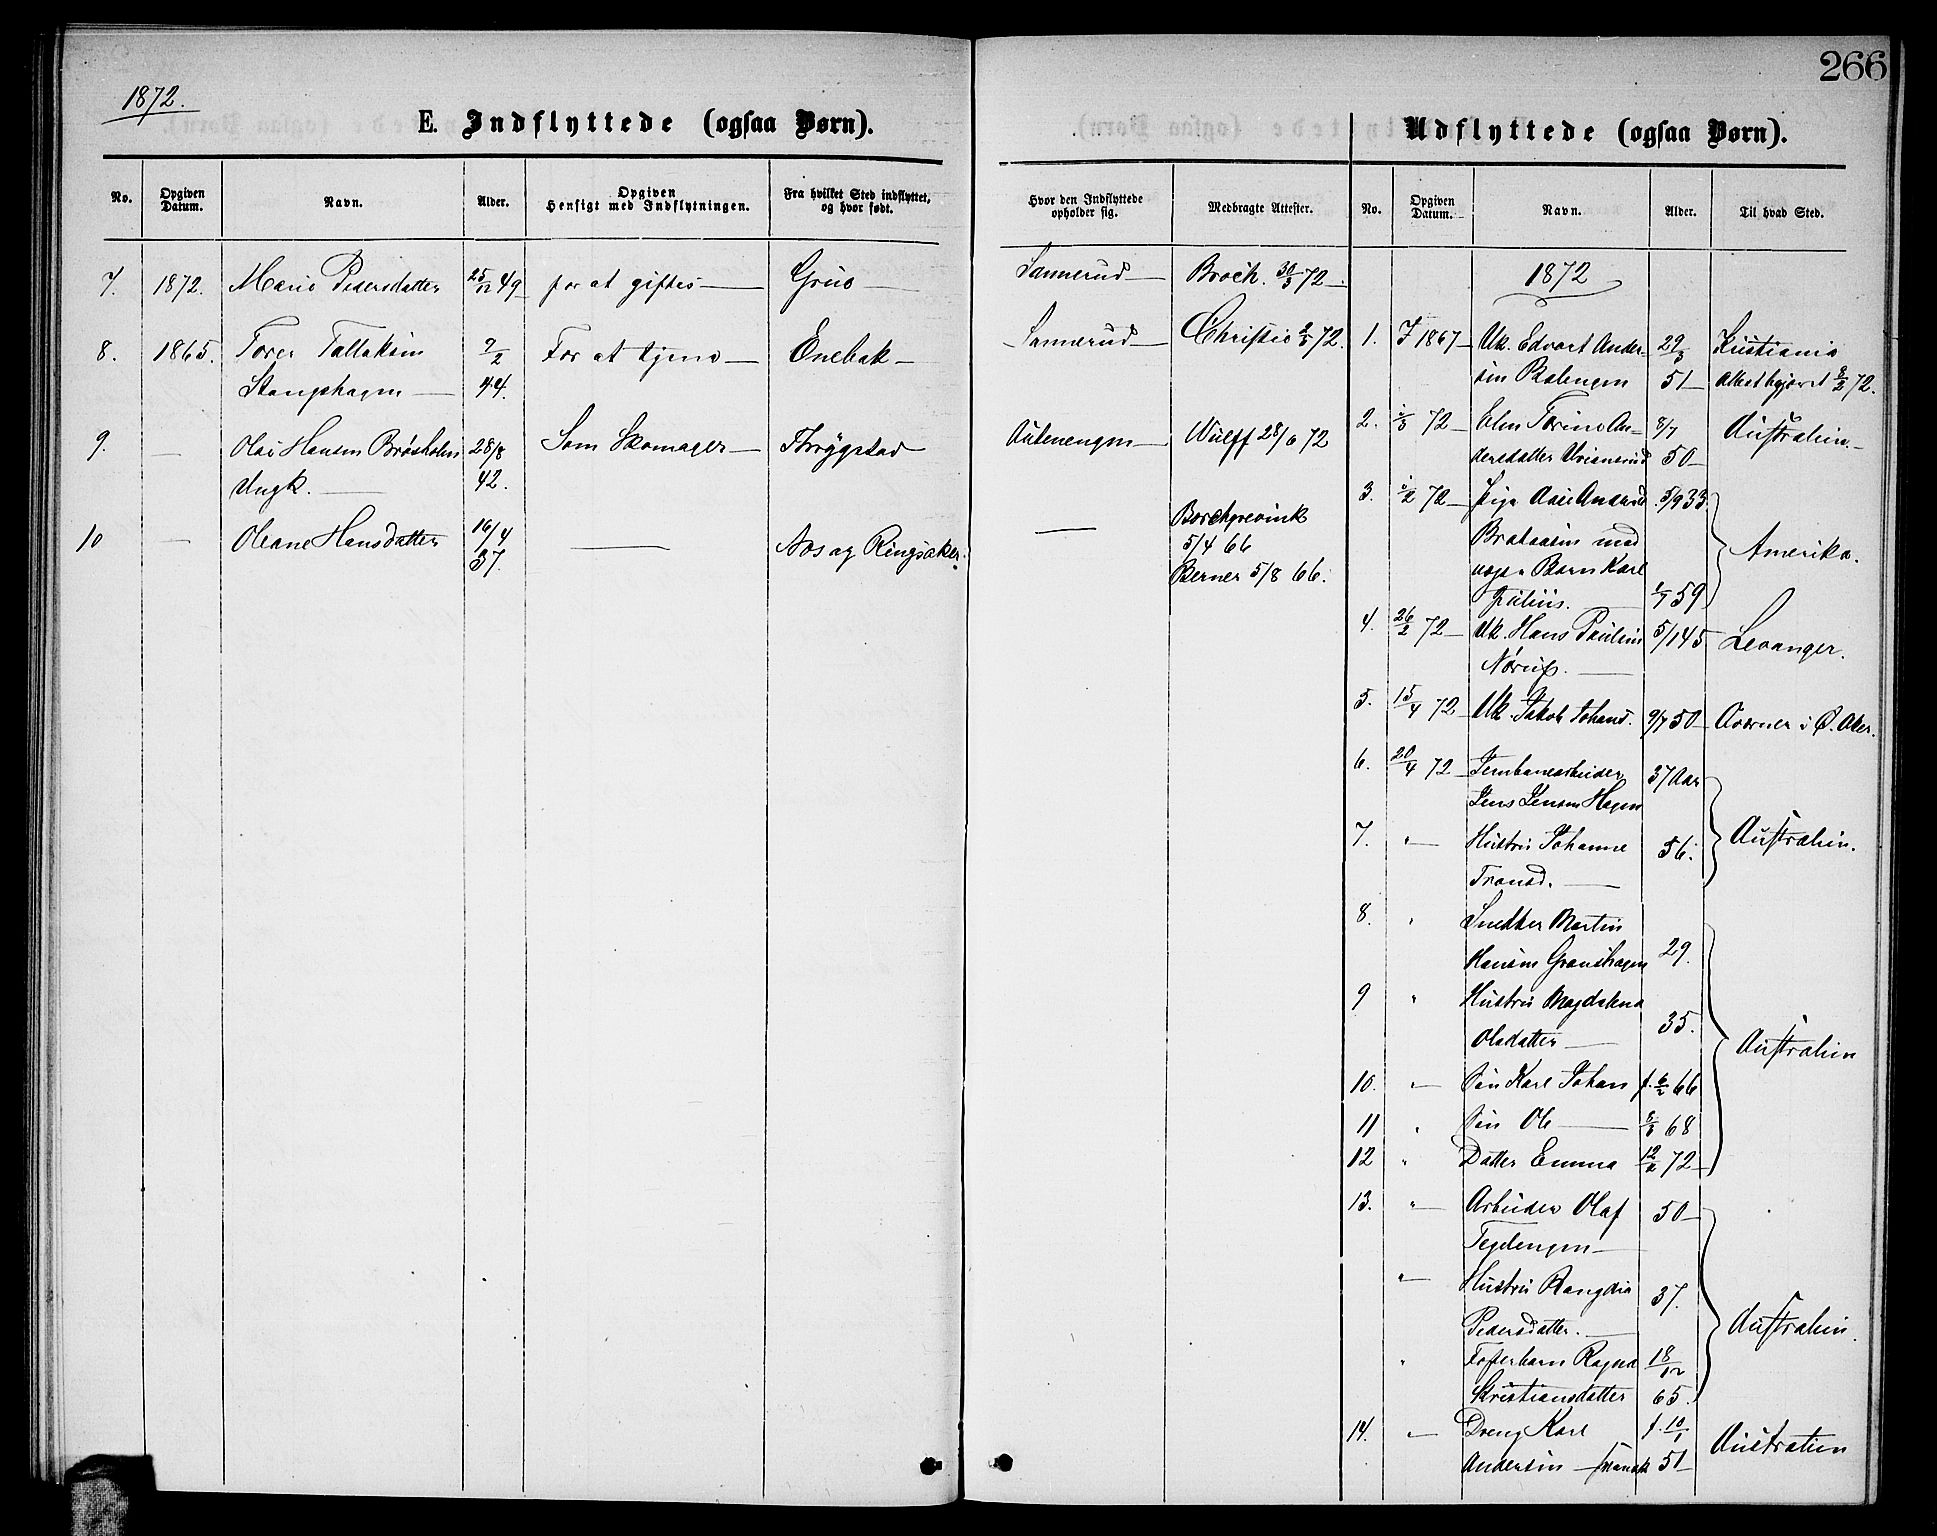 266
1872.
E. Indflyttede (ogsaa Børn).
No. Opgiven Datum. Navn. Alder. Opgiven Hensigt med Indflytningen. Fra hvilket Sted indflyttet, og hvor født.
7. 1872. Marie Pedersdatter 25/12 49 for at giftes — Grue —
8. 1865. Torer Tallaksen 9/2 For at tjene — Enebak —
Stangshagen — 44.
9. — Olai Hansen Brøsholen 28/8 Som Skomager — Thrygstad
Ungk. — 42.
10 — Oleane Hansdatter 16/4 — Nes og Ringsaker.
37.
Hvor den Indflyttede opholder sig. Medbragte Attester.
Sannerud — Broch. 30/3 72 —
Sannerud — Christie 2/5 72.
Wulff 28/6 72
— Borchgrevink
5/4 66
Berner 5/8 66.
Udflyttede (ogsaa Børn).
No. Opgiven Datum. Navn. Alder. Til hvad Sted.
1872
1. 1867 — Uk. Edvart Ander- 29/3 Kristiania
sen 51 — 8/2 72.
2. 72 — Elen Torine An- 8/7 Australien. —
dersdatter 50 —
3. 72 — Pige 5/9 33.
med
Barn Karl Amerika.
Julius. 59
4. 26/2 72 — Uk. Hans Paulsen 5/1 45 Levanger.
—
5. 15/4 72 — Uk. Jakob Johans. 9/7 50 — i Ø. Aker.
6. 20/4 72 — Jernbanearbeider 37 Aar
Jens Jensen Hagen
7. " — Hustru Johanne 36. Australien.
Transd. —
8. " Snedker Martin
Hansen Granshagen 29.
9 " Hustru Magdalena
Olsdatter — 35.
10. " — Søn Karl Johan f. 6/2 66 Australien
11 " Søn Ole — 68
12 " Datter Emma 12/2 72 —
13. " — Arbeider Olaf 50 —
Teglengen —
" — Hustru Rangdia 37.
Pedersdatter. — Australien.
" Fosterbarn Ragna 18/12
Kristiansdatter 65.
14. " — Dreng Karl f. 10/1 Australien
Andersen — 51 —